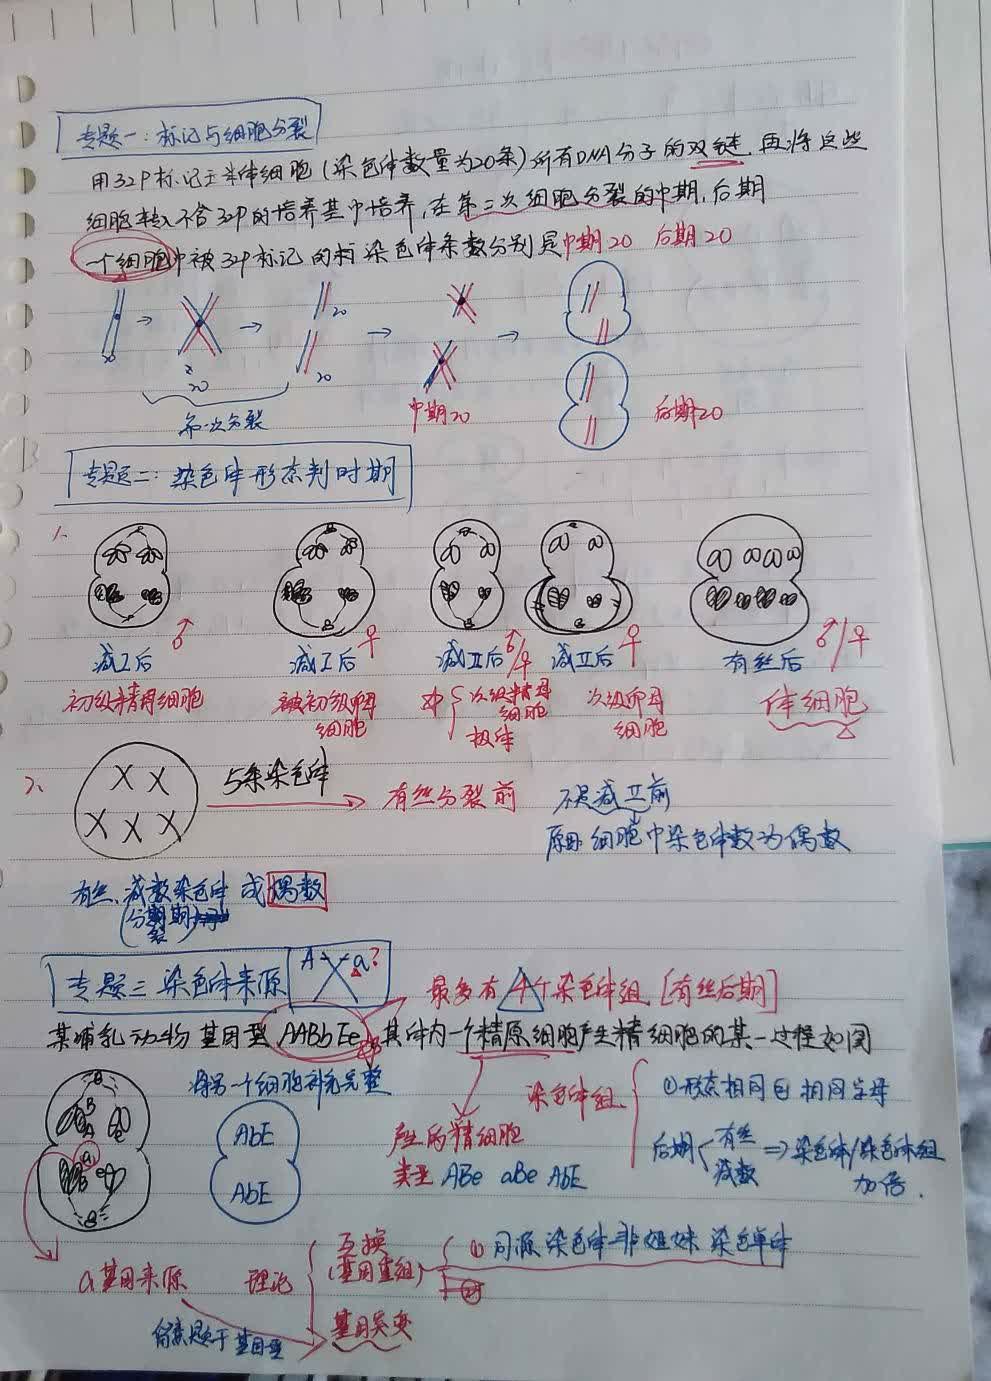 专题一：标记与细胞分裂
用32P标记玉米体细胞(染色体数量为20条)所有DNA分子的双链，再将这些
细胞转入不含32P的培养基中培养，在第二次细胞分裂的中期、后期
一个细胞中被32P标记的染色体条数分别是中期20 后期20
20
20
20
20
第一次分裂
中期20
后期20
专题二：染色体形态判时期
1.
减I后 ♂
减I后 ♀
减II后 ♂/♀
减II后 ♀
有丝后 ♂/♀
初级精母细胞
初级卵母
细胞
次级精母
细胞
极体
次级卵母
细胞
体细胞
2.
5条染色体
有丝分裂前
不是减II前
原因：细胞中染色体数为偶数
有丝、减数染色体 成偶数
专题三 染色体来源
A a?
最多有4个染色体组 [有丝后期]
某哺乳动物基因型AABbEe，其体内一个精原细胞产生精细胞的某一过程如图
将另一个细胞补充完整
染色体组
①形态相同 相同字母
B
A
AbE
AbE
产生的精细胞
类型 ABe aBe AbE
后期 有丝
减数
⇒染色体/染色体组
加倍.
a基因来源
理论
互换
(基因重组)
①同源染色体非姐妹染色单体
基因突变